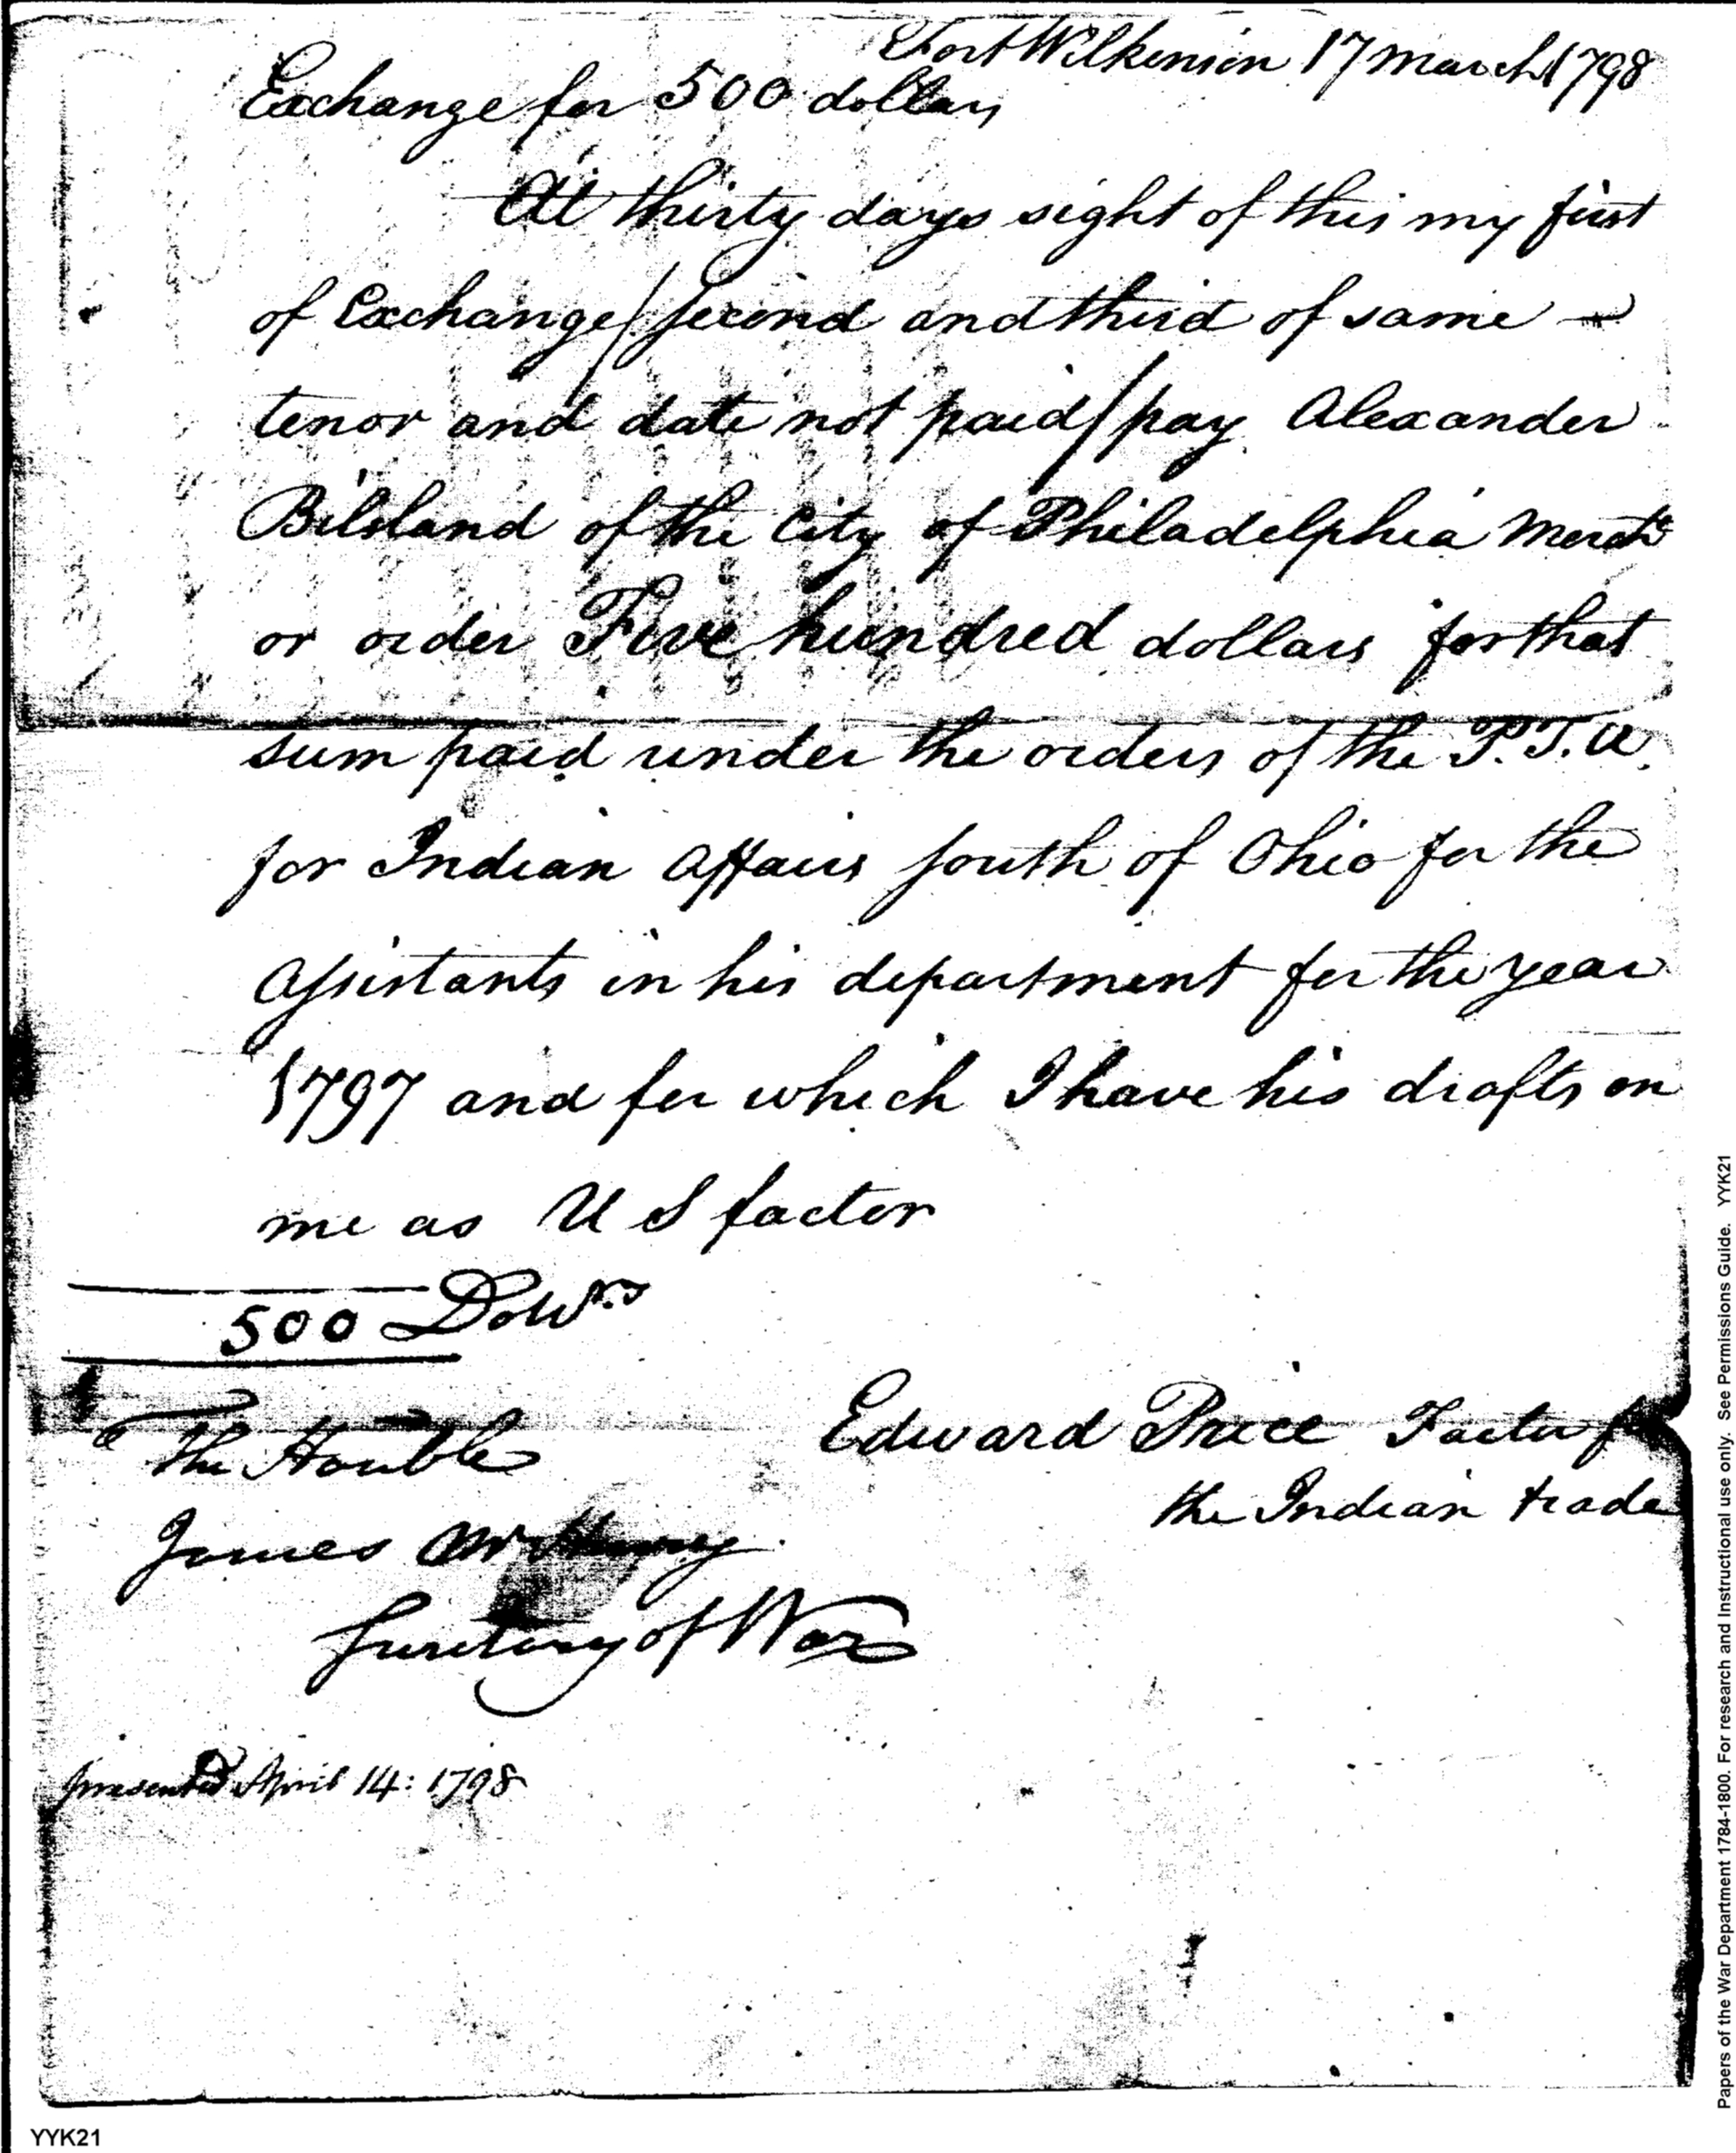 Fort Wilkinson 17 March 1798
Exchange for 500 dollars
At thirty days sight of this my first
of Exchange / second and third of same
tenor and date not paid / pay Alexander
Bilsland of the City of Philadelphia Mercht
or order Five hundred dollars for that
sum paid under the orders of the P. T. A.
for Indian Affairs south of Ohio for the
Assistants in his department for the year
1797 and for which I have his drafts on
me as U S factor
500 Dollrs
Edward Price Factor for
the Indian trade
The Honble
James McHenry
Secretary of War
presented April 14: 1798
YYK21
Papers of the War Department 1784-1800. For research and Instructional use only. See Permissions Guide. YYK21